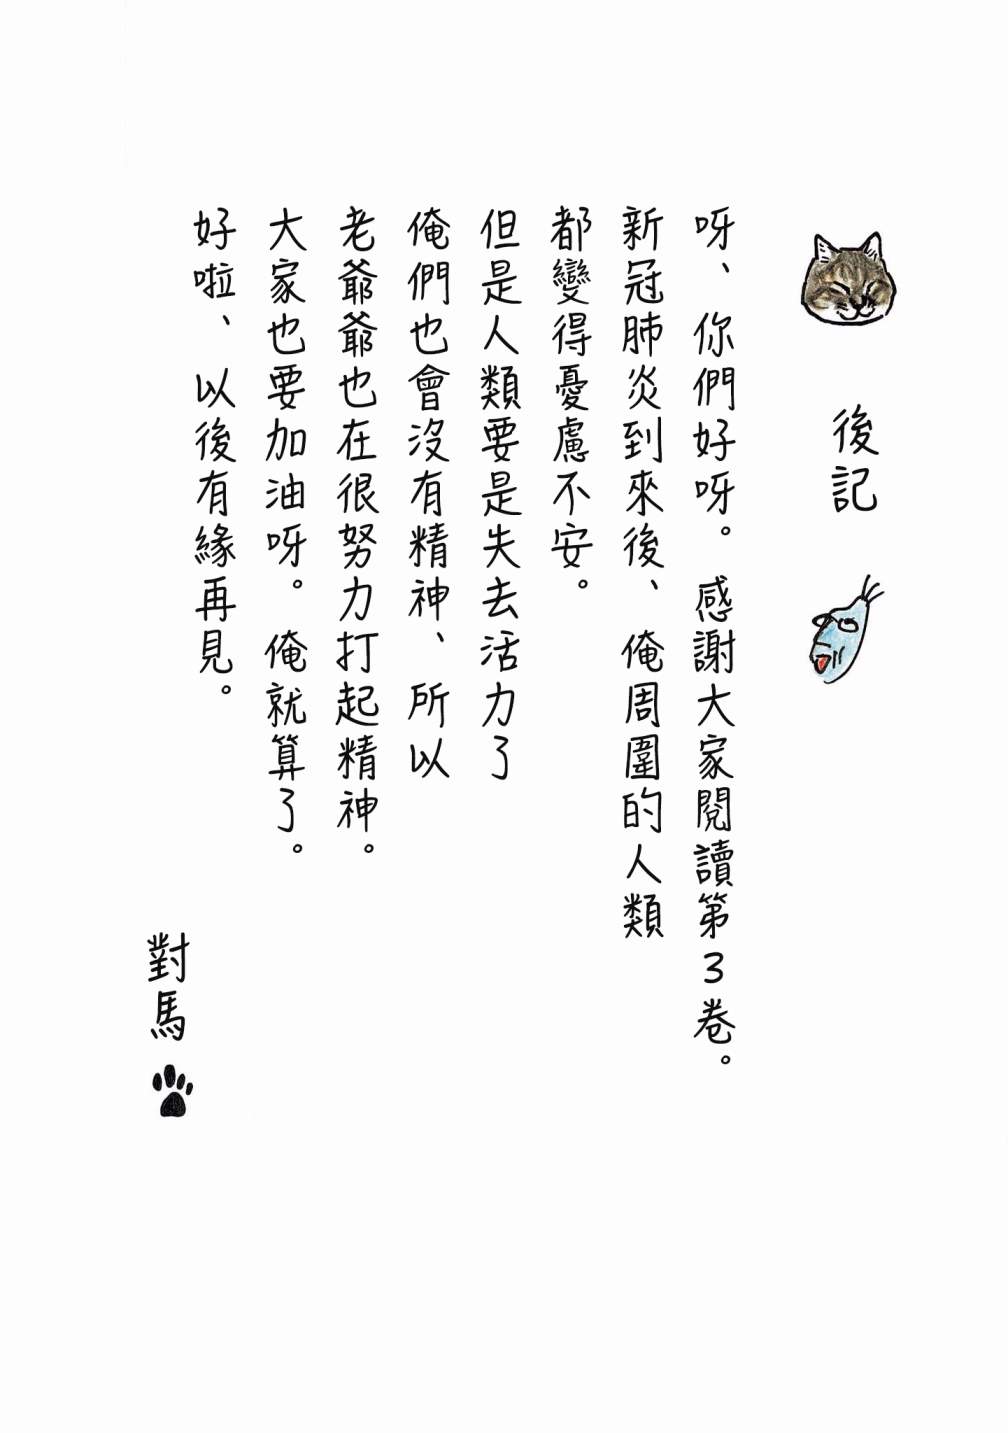 後記
呀、你們好呀。感謝大家閱讀第3卷。
新冠肺炎到來後、俺周圍的人類
都變得憂慮不安。
但是人類要是失去活力了
俺們也會沒有精神、所以
老爺爺也在很努力打起精神。
大家也要加油呀。俺就算了。
好啦、以後有緣再見。
對馬